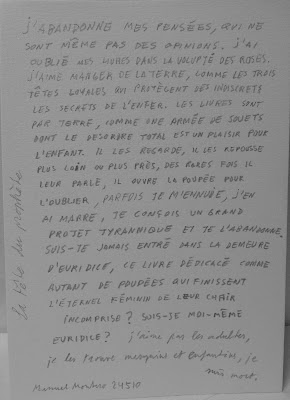 J'ABANDONNE MES PENSÉES, QUI NE
SONT MÊME PAS DES OPINIONS. J'AI
OUBLIÉ MES LIVRES DANS LA VOLUPTÉ DES ROSES.
J'AIME MANGER DE LA TERRE, COMME LES TROIS
TÊTES LOYALES QUI PROTÈGENT DES INDISCRETS
LES SECRETS DE L'ENFER. LES LIVRES SONT
PAR TERRE, COMME UNE ARMÉE DE SUJETS
DONT LE DÉSORDRE TOTAL EST UN PLAISIR POUR
L'ENFANT. IL LES REGARDE, IL LES REPOUSSE
PLUS LOIN OU PLUS PRÈS, DES RARES FOIS IL
LEUR PARLE, IL OUVRE LA POUPÉE POUR
L'OUBLIER, PARFOIS JE M'ENNUIE, J'EN
AI MARRE, JE CONÇOIS UN GRAND
PROJET TYRANNIQUE ET JE L'ABANDONNE.
SUIS-JE JAMAIS ENTRÉ DANS LA DEMEURE
D'EURIDICE, CE LIVRE DÉDICACÉ COMME
AUTANT DE POUPÉES QUI FINISSENT
L'ÉTERNEL FÉMININ DE LEUR CHAIR
INCOMPRISE? SUIS-JE MOI-MÊME
EURIDICE? j'aime pas les adultes,
je les trouve mesquins et enfantins, je
suis mort.
24510
la tête du prophète